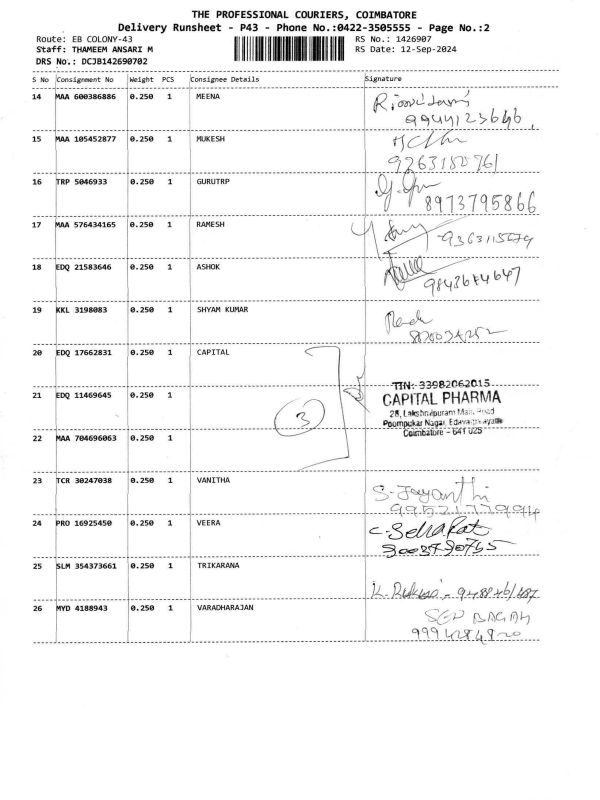 THE PROFESSIONAL COURIERS, COIMBATORE
Delivery Runsheet - P43 - Phone No.:0422-3505555 - Page No.:2
Route: EB COLONY-43 RS No.: 1426907
Staff: THAMEEM ANSARI M RS Date: 12-Sep-2024
DRS No.: DCJB142690702
S No Consignment No Weight PCS Consignee Details Signature
14 MAA 600386886 0.250 1 MEENA
15 MAA 105452877 0.250 1 MUKESH
16 TRP 5046933 0.250 1 GURUTRP
8973795866
17 MAA 576434165 0.250 1 RAMESH
18 EDQ 21583646 0.250 1 ASHOK
19 KKL 3198083 0.250 1 SHYAM KUMAR
20 EDQ 17662831 0.250 1 CAPITAL
TIN: 33982062015
21 EDQ 11469645 0.250 1
CAPITAL PHARMA
3
28, Lakshmipuram Main Road
Poompukar Nagar,
Coimbatore - 641 025
22 MAA 704696063 0.250 1
23 TCR 30247038 0.250 1 VANITHA
S. Jayanthi
24 PRO 16925450 0.250 1 VEERA
25 SLM 354373661 0.250 1 TRIKARANA
26 MYD 4188943 0.250 1 VARADHARAJAN